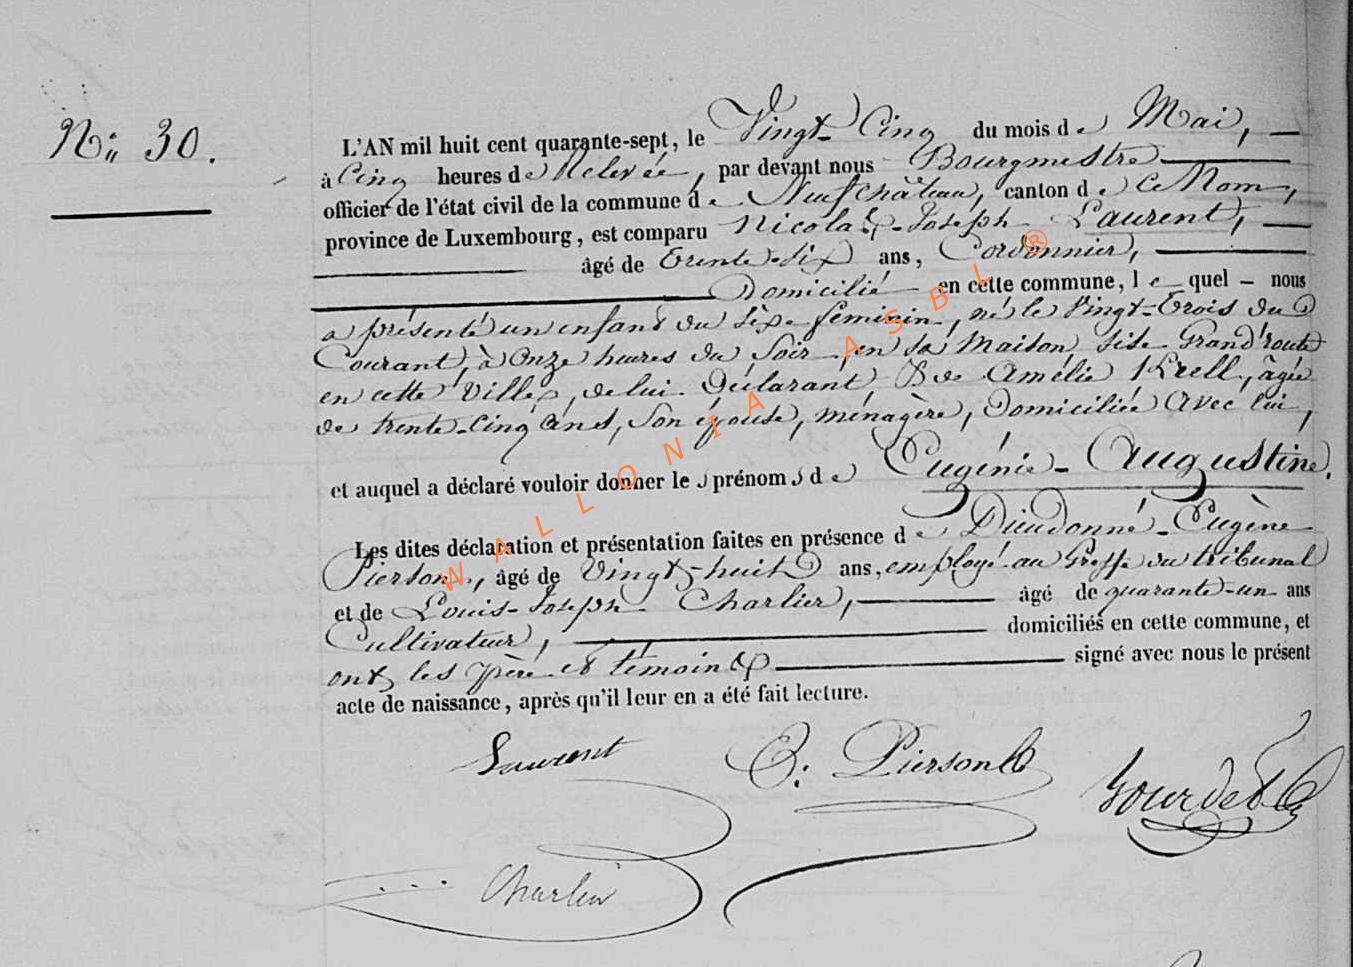 N° 30.
L'AN mil huit cent quarante-sept, le Vingt-Cinq du mois de Mai,
à Cinq heures de Relevée, par devant nous Bourgmestre
officier de l'état civil de la commune de Neufchâteau, canton de Ce Nom,
province de Luxembourg, est comparu Nicolas-Joseph Laurent,
âgé de trente-six ans, Cordonnier,
Domicilié en cette commune, lequel nous
a présenté un enfant du sèxe féminin, né le Vingt-trois du
Courant, à Onze heures du Soir, en sa Maison, sise Grand'route
en cette Ville, de lui Déclarant & de Amélie Krell, âgée
de trente-cinq ans, son épouse, ménagère, Domiciliée avec lui,
et auquel a déclaré vouloir donner les prénoms de Eugénie-Augustine.
Les dites déclaration et présentation faites en présence de Dieudonné-Eugène
Pierson, âgé de Vingt-huit ans, employé au Greffe du tribunal
et de Louis-Joseph Charlier, âgé de quarante-un ans
Cultivateur, domiciliés en cette commune, et
ont les père et témoins signé avec nous le présent
acte de naissance, après qu'il leur en a été fait lecture.
Laurent E. Pierson
Charlier
WALLONIA ASBL ®